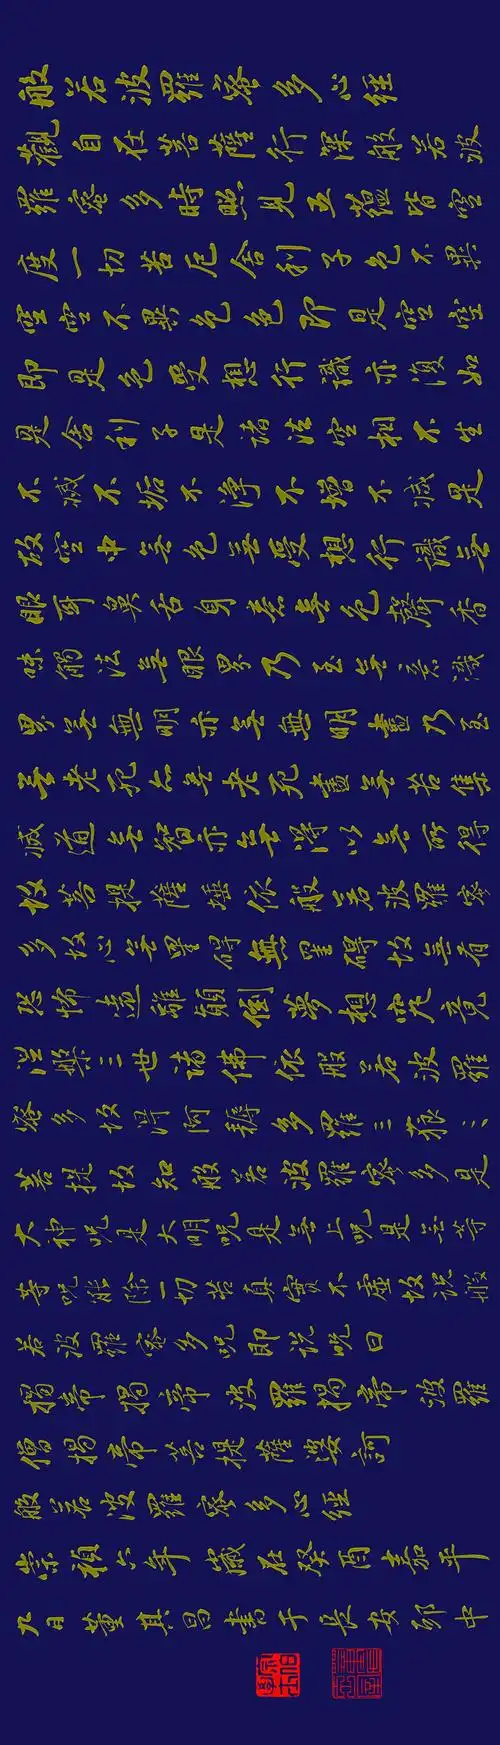 般若波羅蜜多心經
觀自在菩薩行深般若波
羅蜜多時照見五蘊皆空
度一切苦厄舍利子色不異
空空不異色色即是空空
即是色受想行識亦復如
是舍利子是諸法空相不生
不滅不垢不淨不增不減是
故空中無色無受想行識無
眼耳鼻舌身意無色聲香
味觸法無眼界乃至無意識
界無無明亦無無明盡乃至
無老死亦無老死盡無苦集
滅道無智亦無得以無所得
故菩提薩埵依般若波羅蜜
多故心無罣礙無罣礙故無有
恐怖遠離顛倒夢想究竟
涅槃三世諸佛依般若波羅
蜜多故得阿耨多羅三藐三
菩提故知般若波羅蜜多是
大神咒是大明咒是無上咒是無等
等咒能除一切苦真實不虛故說般
若波羅蜜多咒即說咒曰
揭帝揭帝波羅揭帝波羅
僧揭帝菩提薩婆訶
般若波羅蜜多心經
崇禎六年歲在癸酉嘉平
九日董其昌書于長安邸中